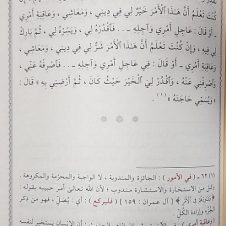 كُنْتَ تَعْلَمُ أَنَّ هَـٰذَا الْأَمْرَ خَيْرٌ لِي فِي دِينِي ، وَمَعَاشِي ، وَعَاقِبَةِ أَمْرِي
- أَوْ قَالَ : عَاجِلِ أَمْرِي وَآجِلِهِ - . . فَاقْدُرْهُ لِي ، وَيَسِّرْهُ لِي ، ثُمَّ بَارِكْ
لِي فِيهِ ، وَإِنْ كُنْتَ تَعْلَمُ أَنَّ هَـٰذَا الْأَمْرَ شَرٌّ لِي فِي دِينِي ، وَمَعَاشِي ،
وَعَاقِبَةِ أَمْرِي - أَوْ قَالَ : فِي عَاجِلِ أَمْرِي وَآجِلِهِ - . . فَاصْرِفْهُ عَنِّي ،
وَاصْرِفْنِي عَنْهُ ، وَاقْدُرْ لِيَ الْخَيْرَ حَيْثُ كَانَ ، ثُمَّ أَرْضِنِي بِهِ » قَالَ :
« وَيُسَمِّي حَاجَتَهُ » (١)
(١) ( في الأمور ) : الجائزة والمندوبة ، لا الواجبة والمحرَّمة والمكروهة
من الاستخارة والاستشارة مندوب ؛ لأن الله تعالى أمر حبيبه بقوله
آل عمران : ١٥٩ ) ، ( فليركع ) ؛ أي : يُصلِّ ، فهو من ذكر
الجزء وإرادة الكل